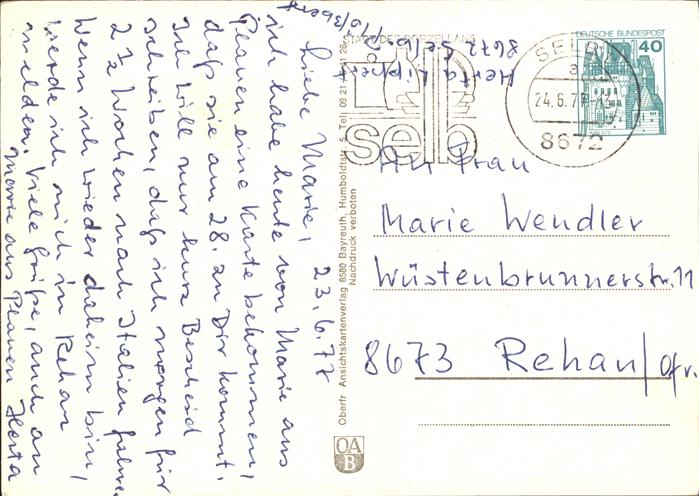 Herta Lippert
8672 Selb
23.6.77
Liebe Marie,
ich habe heute von Marie aus
Plauen eine Karte bekommen,
daß sie am 28. zu Dir kommt.
Ich will nur kurz Bescheid
schreiben, daß ich morgen für
2½ Wochen nach Italien fahre.
Wenn ich wieder daheim bin,
werde ich mich in Rehau
melden. Viele Grüße, auch an
Marie aus Plauen Herta
STADT DES PORZELLANS
selb
SELB
a
24.6.77-13
8672
DEUTSCHE BUNDESPOST
40
An Frau
Marie Wendler
Wüstenbrunnerstr. 11
8673 Rehau/Ofr.
Oberfr Ansichtskartenverlag 8580 Bayreuth, Humboldtstr. 5, Tel. 09 21 / 41 26
Nachdruck verboten
OA
B